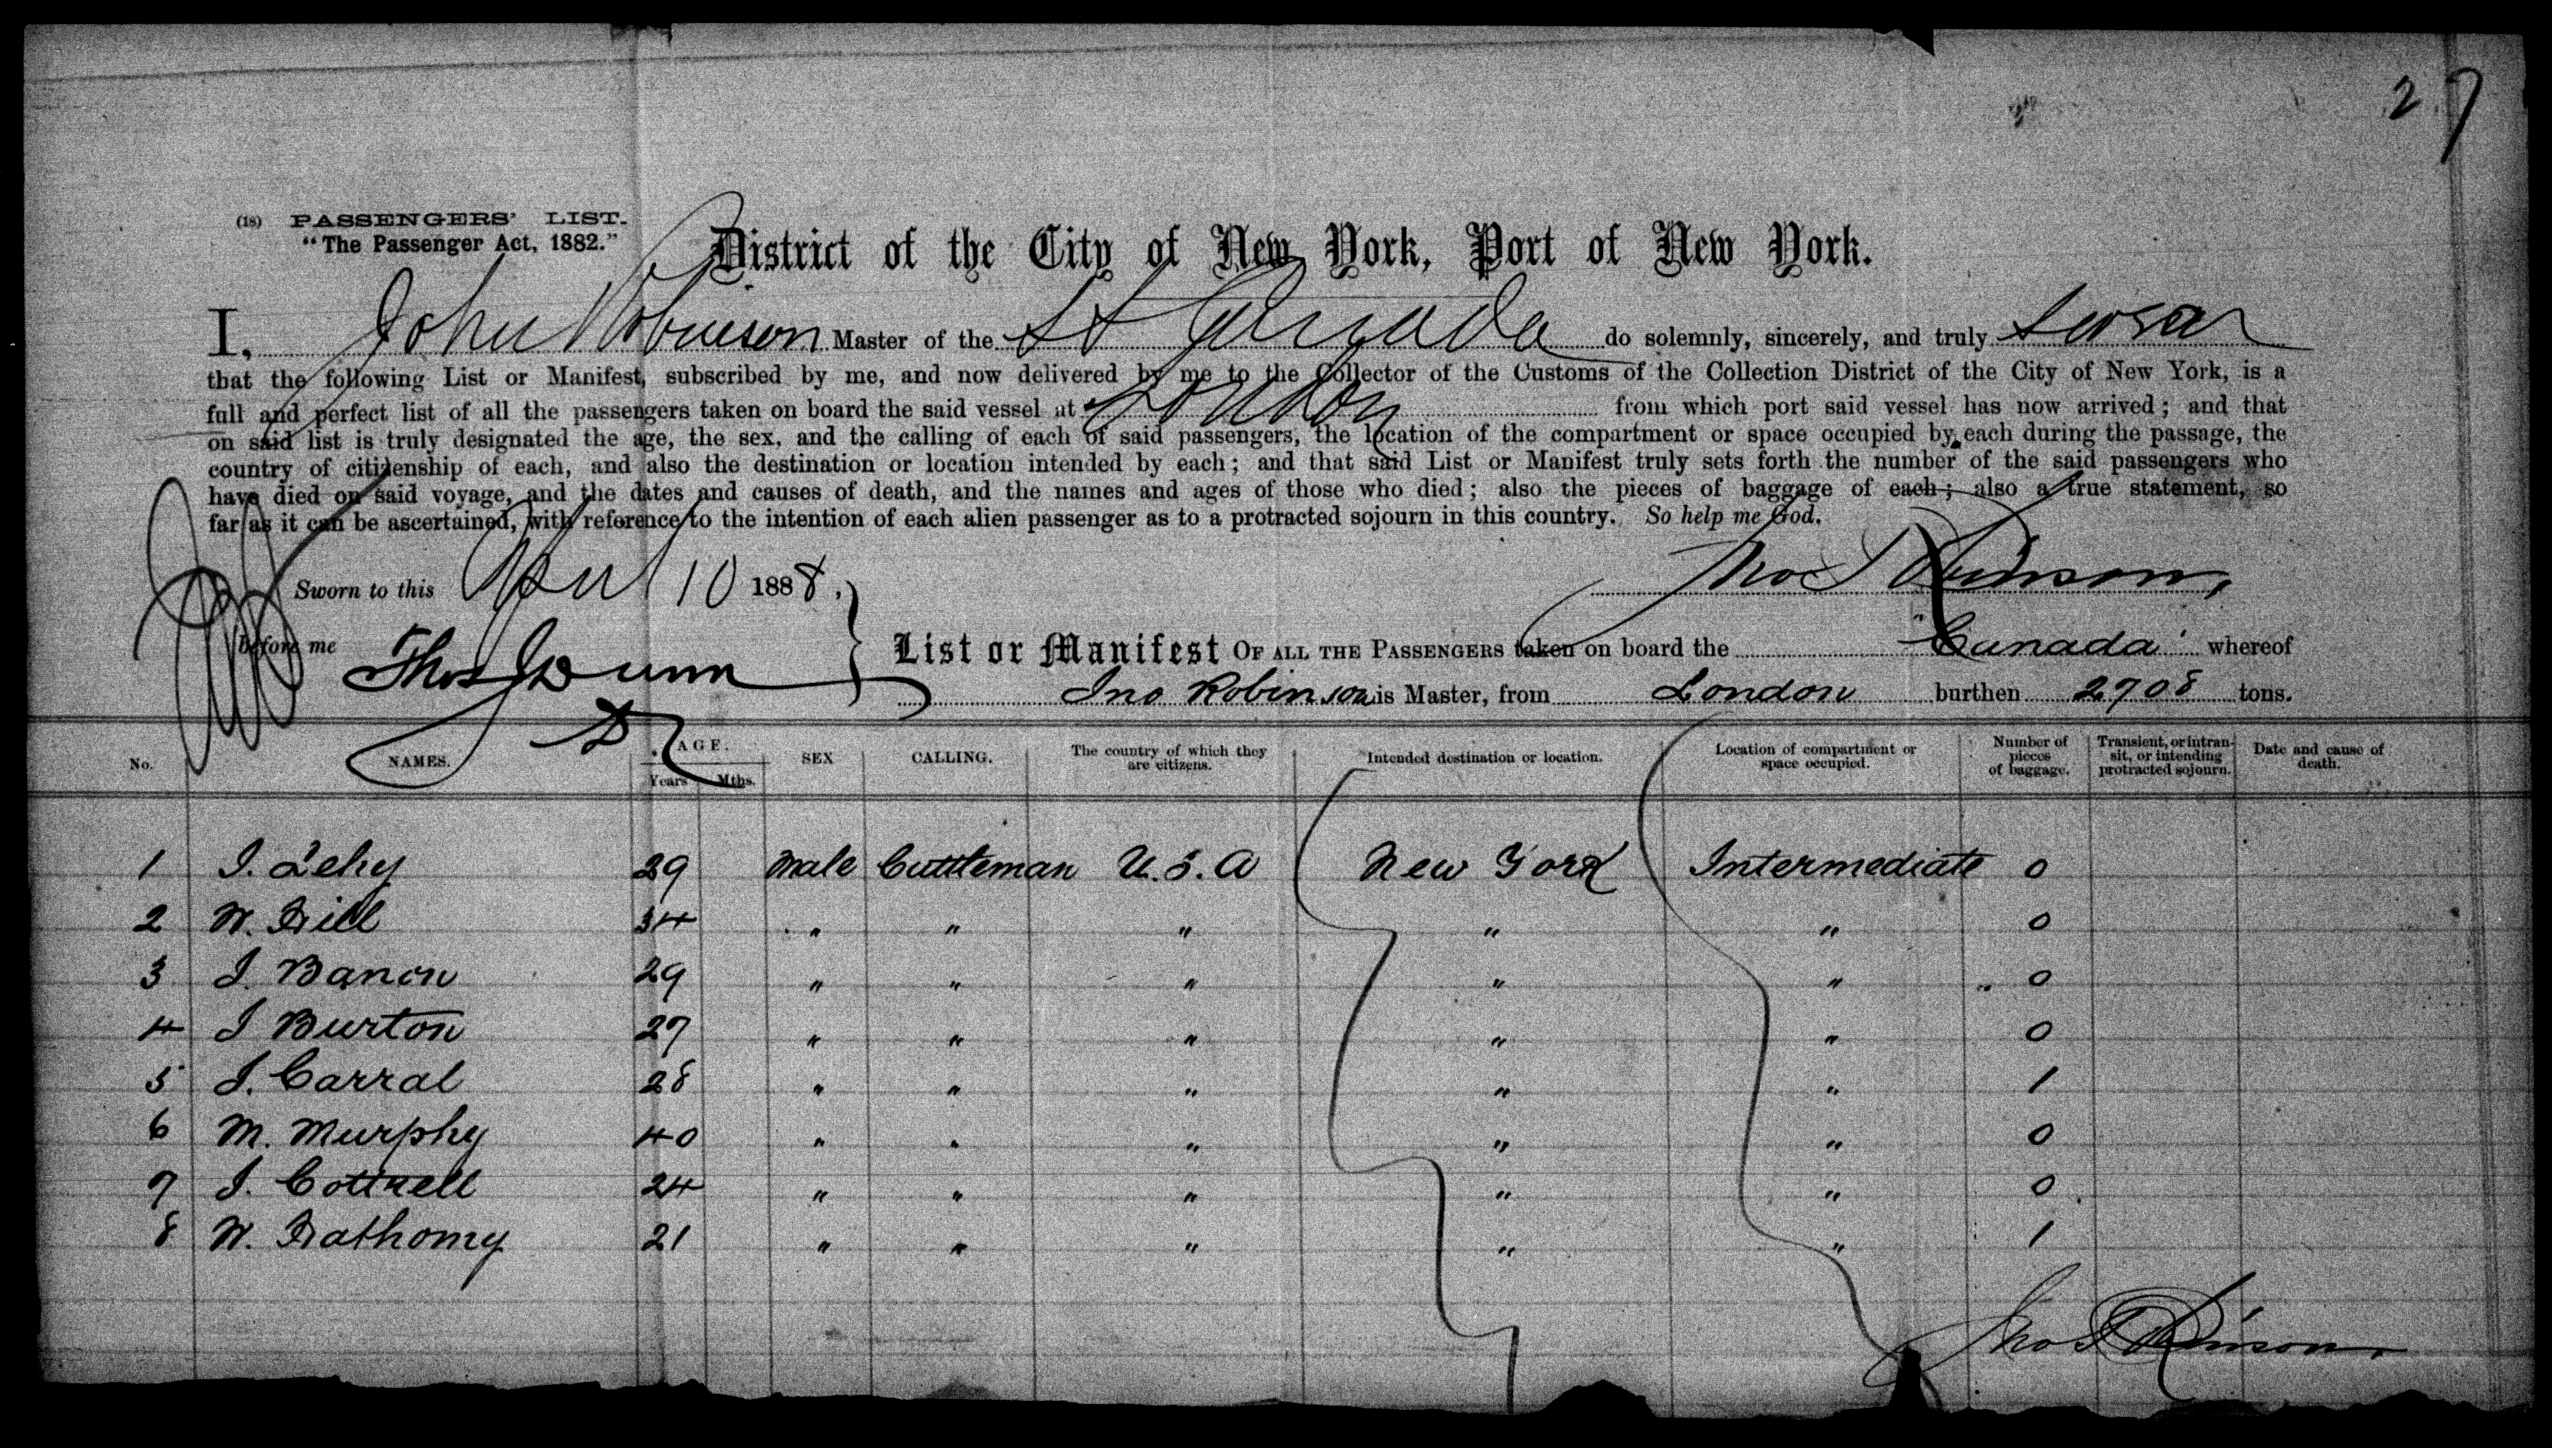 27
(18) PASSENGERS' LIST.
"The Passenger Act, 1882."
District of the City of New York, Port of New York.
I, John Robinson Master of the SS Canada do solemnly, sincerely, and truly swear
that the following List or Manifest, subscribed by me, and now delivered by me to the Collector of the Customs of the Collection District of the City of New York, is a
full and perfect list of all the passengers taken on board the said vessel at London from which port said vessel has now arrived; and that
on said list is truly designated the age, the sex, and the calling of each of said passengers, the location of the compartment or space occupied by each during the passage, the
country of citizenship of each, and also the destination or location intended by each; and that said List or Manifest truly sets forth the number of the said passengers who
have died on said voyage, and the dates and causes of death, and the names and ages of those who died; also the pieces of baggage of each; also a true statement, so
far as it can be ascertained, with reference to the intention of each alien passenger as to a protracted sojourn in this country. So help me God.
Sworn to this April 10 1888, Jno Robinson,
before me Thos J Dunn
List or Manifest OF ALL THE PASSENGERS taken on board the "Canada" whereof
Jno Robinson is Master, from London burthen 2708 tons.
No. NAMES. AGE. Years Mths. SEX CALLING. The country of which they are citizens. Intended destination or location. Location of compartment or space occupied. Number of pieces of baggage. Transient, or intransit, or intending protracted sojourn. Date and cause of death.
1 J. Lehy 29 Male Cattleman U.S.A New York Intermediate 0
2 W. Hill 34 " " " " " 0
3 J. Banon 29 " " " " " 0
4 J Burton 27 " " " " " 0
5 J. Carral 28 " " " " " 1
6 M. Murphy 40 " " " " " 0
7 J. Cottrell 24 " " " " " 0
8 W. 21 " " " " " 1
Jno Robinson.